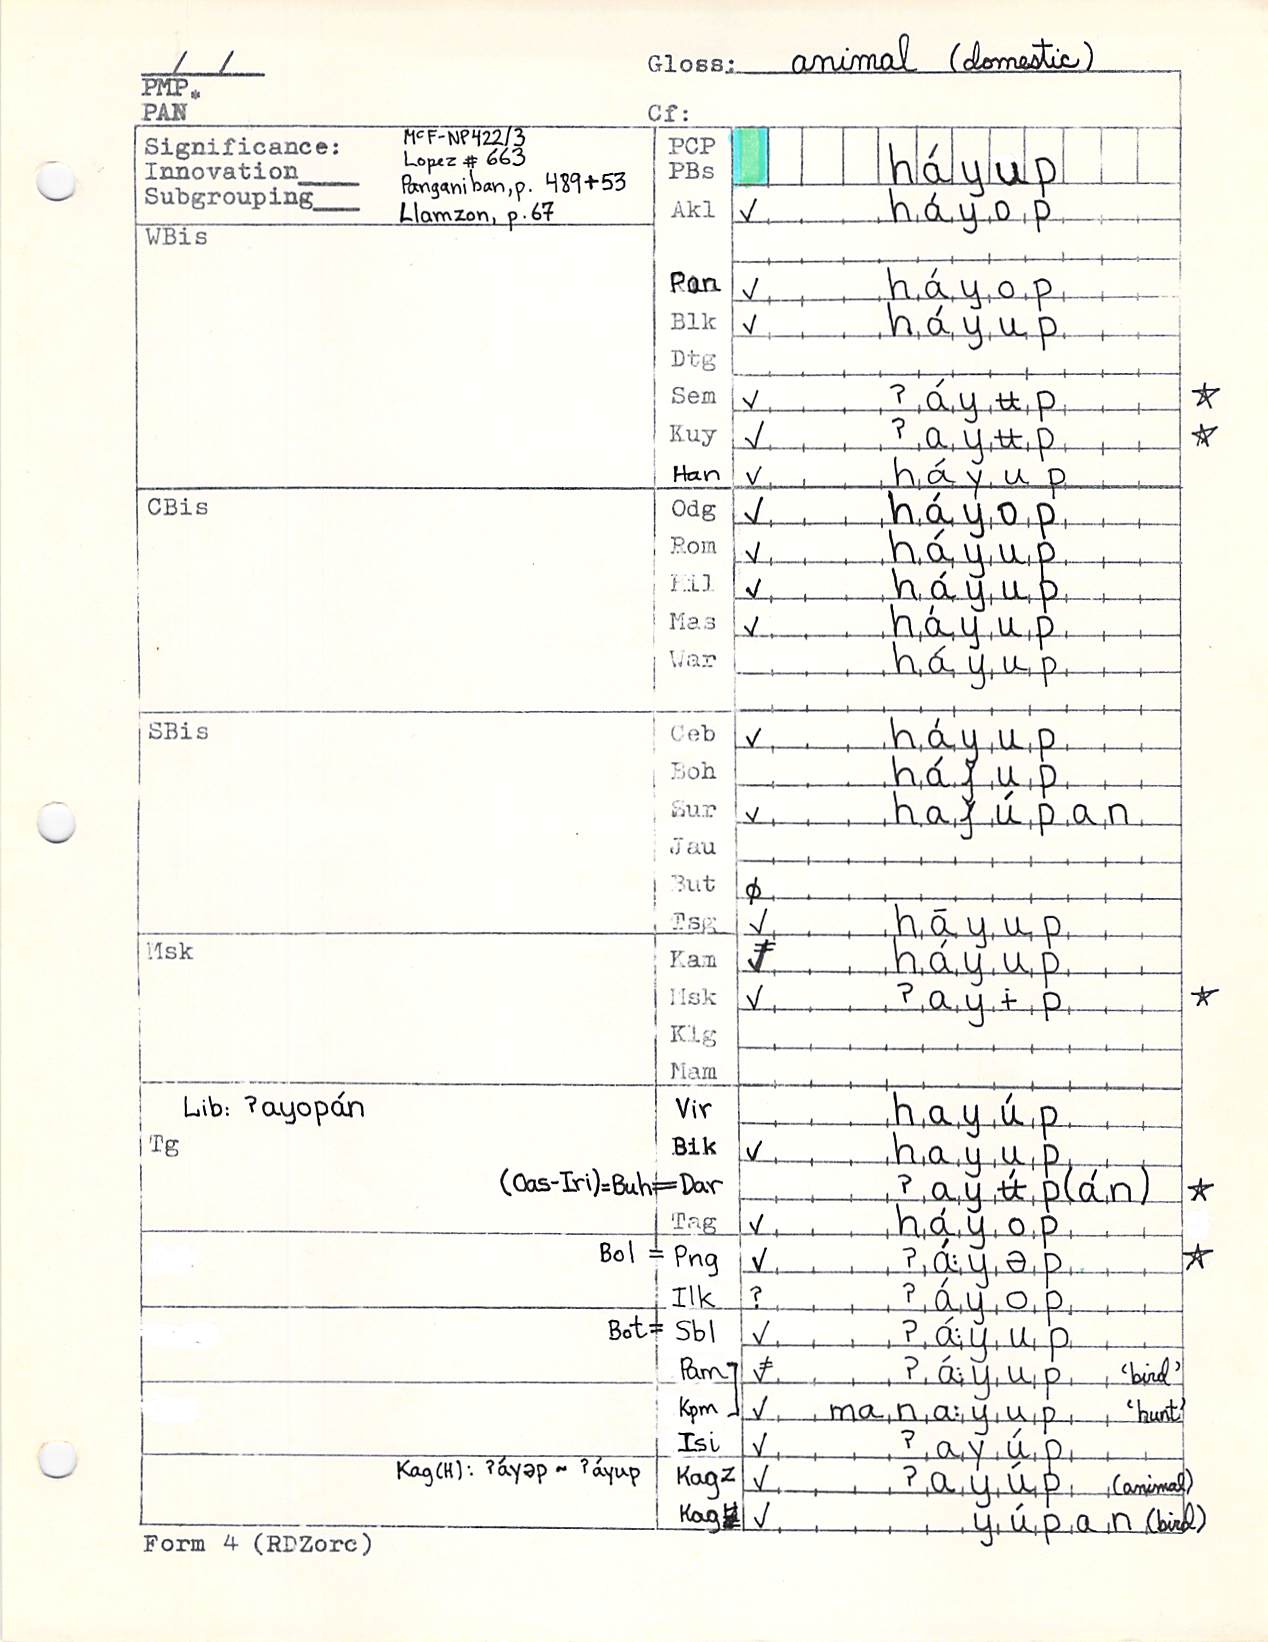 / /
Gloss: animal (domestic)
PMP.
PAN Cf:
Significance: McF-NP422/3
Innovation Lopez # 663
Subgrouping Panganiban, p. 489+53
Llamzon, p. 67
PCP
PBs háyup
Akl ✓ háyop
WBis
Pan ✓ háyop
Blk ✓ háyup
Dtg
Sem ✓ ʔáyʉp ☆
Kuy ✓ ʔayʉp ☆
Han ✓ háyup
CBis Odg ✓ háyop
Rom ✓ háyup
Hil ✓ háyup
Mas ✓ háyup
War háyup
SBis Ceb ✓ háyup
Boh há up
Sur ✓ ha úpan
Jau
But ϕ
Tsg ✓ hāyup
Msk Kam háyup
Msk ✓ ʔayɨp ☆
Klg
Mam
Lib: ʔayopán Vir hayúp
Tg Bik ✓ hayup
(Oas-Iri)=Buh=Dar ʔayʉ́p(án) ☆
Tag ✓ háyop
Bol = Png ✓ ʔá:yəp ☆
Ilk ? ʔáyop
Bot= Sbl ✓ ʔá:yup
Pam ≠ ʔá:yup 'bird'
Kpm ✓ mana:yup 'hunt'
Isi ✓ ʔayúp
Kag(H): ʔáyəp ~ ʔáyup KagZ ✓ ʔayúp (animal)
Kag ✓ yúpan (bird)
Form 4 (RDZorc)